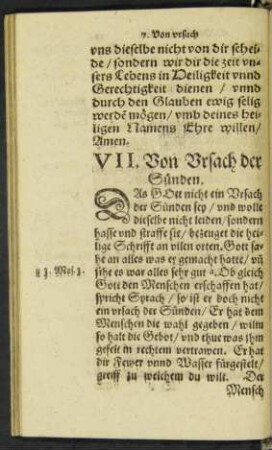 7. Von vrsach
vns dieselbe nicht von dir schei-
de / sondern wir dir die zeit vn-
sers Lebens in Heiligkeit vnnd
Gerechtigkeit dienen / vnnd
durch den Glauben ewig selig
werdē mögen / vmb deines hei-
ligen Namens Ehre willen /
Amen.
VII. Von Vrsach der
Sünden.
DAs GOtt nicht ein Vrsach
der Sünden sey / vnd wolle
dieselbe nicht leiden / sondern
hasse vnd straffe sie / bezeuget die hei-
lige Schrifft an vilen orten. Gott sa-
he an alles was er gemacht hatte / vñ
sihe es war alles sehr gut a. Ob gleich
a 1. Mos. 1.
Gott den Menschen erschaffen hat /
spricht Syrach / so ist er doch nicht
ein vrsach der Sünden / Er hat dem
Menschen die wahl gegeben / wiltu
so halt die Gebot / vnd thue was jhm
gefelt in rechtem vertrawen. Er hat
dir Fewer vnnd Wasser fürgestelt /
greiff zu welchem du wilt. Der
Mensch